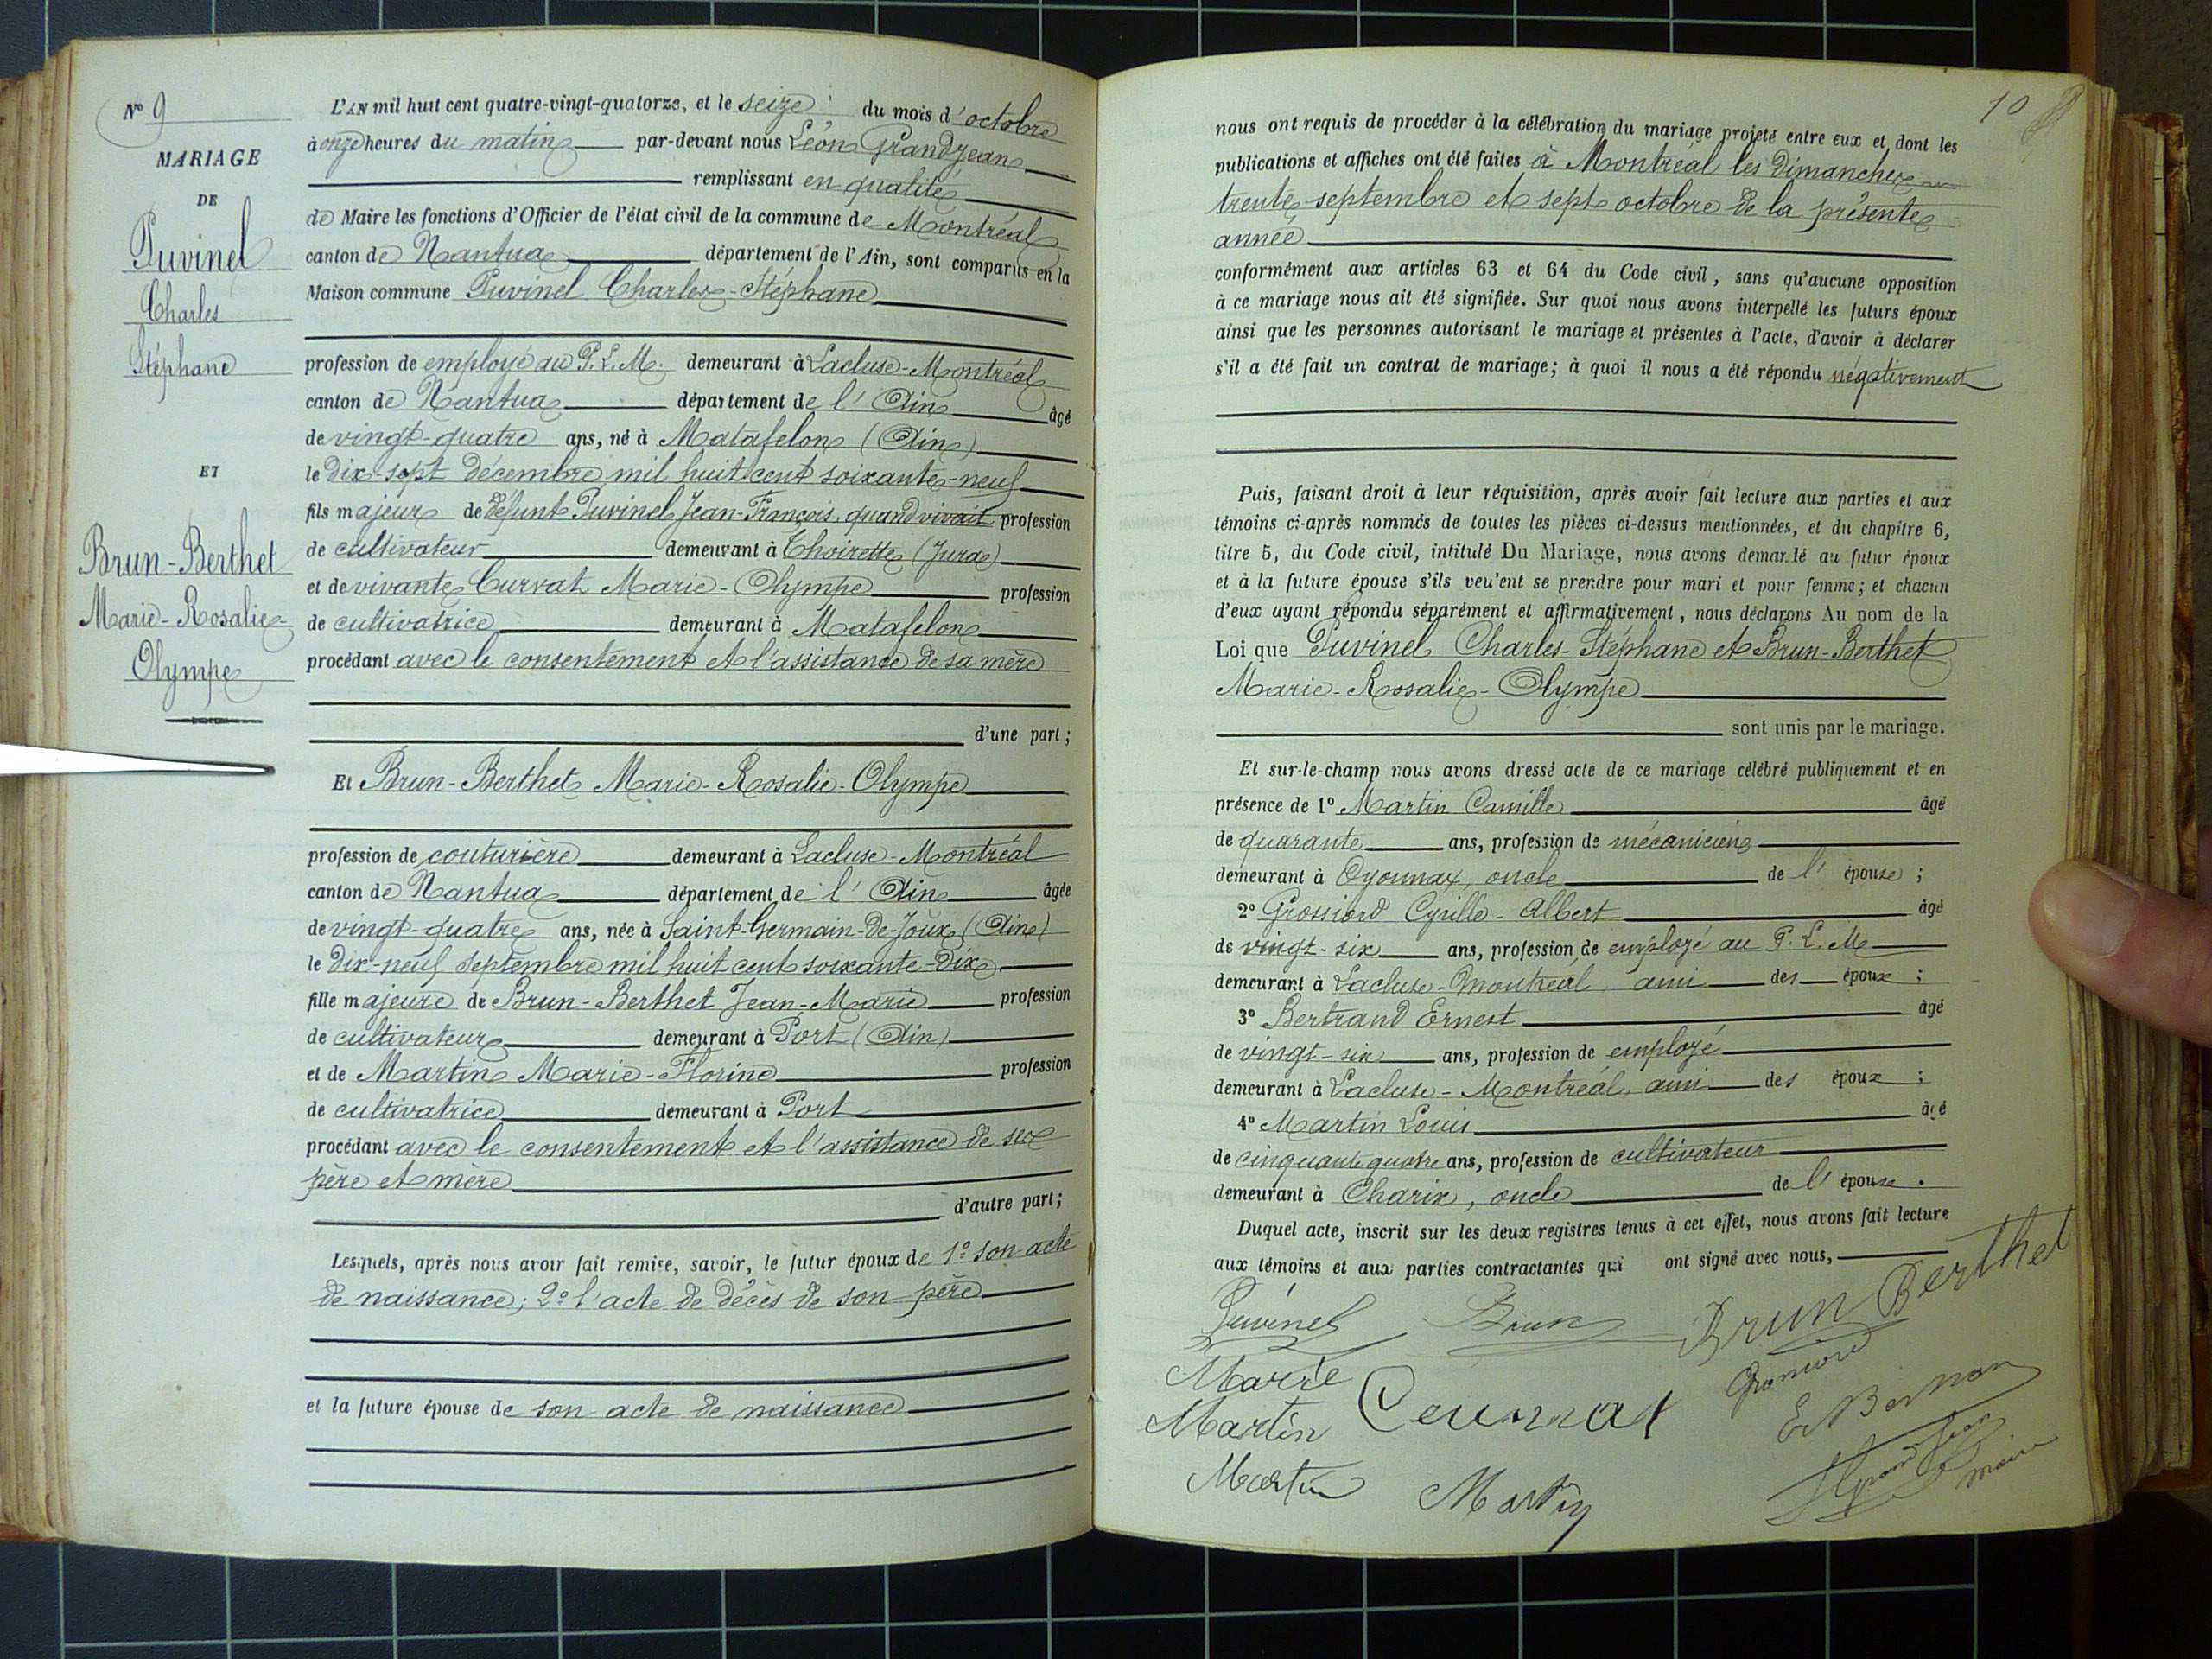 N° 9
MARIAGE
DE
Puvinel
Charles
Stéphane
ET
Brun-Berthet
Marie-Rosalie-
Olympe
L'AN mil huit cent quatre-vingt-quatorze, et le seize du mois d'octobre
à onze heures du matin par-devant nous Léon Grandjean
remplissant en qualité
de Maire les fonctions d'Officier de l'état civil de la commune de Montréal
canton de Nantua département de l'Ain, sont comparus en la
Maison commune Puvinel Charles-Stéphane
profession de employé au P.L.M. demeurant à Lacluse-Montréal
canton de Nantua département de l'Ain âgé
de vingt-quatre ans, né à Matafelon (Ain)
le dix-sept décembre mil huit cent soixante-neuf
fils majeur de défunt Puvinel Jean-François, quand vivait profession
de cultivateur demeurant à Thoirette (Jura)
et de vivante Curvat Marie-Olympe profession
de cultivatrice demeurant à Matafelon
procédant avec le consentement et l'assistance de sa mère
d'une part;
Et Brun-Berthet Marie-Rosalie-Olympe
profession de couturière demeurant à Lacluse-Montréal
canton de Nantua département de l'Ain âgée
de vingt-quatre ans, née à Saint-Germain-de-Joux (Ain)
le dix-neuf septembre mil huit cent soixante-dix
fille majeure de Brun-Berthet Jean-Marie profession
de cultivateur demeurant à Port (Ain)
et de Martin Marie-Florine profession
de cultivatrice demeurant à Port
procédant avec le consentement et l'assistance de ses
père et mère
d'autre part;
Lesquels, après nous avoir fait remise, savoir, le futur époux de 1° son acte
de naissance; 2° l'acte de décès de son père
et la future épouse de son acte de naissance
10
nous ont requis de procéder à la célébration du mariage projeté entre eux et dont les
publications et affiches ont été faites à Montréal les dimanches
trente septembre et sept octobre de la présente
année
conformément aux articles 63 et 64 du Code civil, sans qu'aucune opposition
à ce mariage nous ait été signifiée. Sur quoi nous avons interpellé les futurs époux
ainsi que les personnes autorisant le mariage et présentes à l'acte, d'avoir à déclarer
s'il a été fait un contrat de mariage; à quoi il nous a été répondu négativement
Puis, faisant droit à leur réquisition, après avoir fait lecture aux parties et aux
témoins ci-après nommés de toutes les pièces ci-dessus mentionnées, et du chapitre 6,
titre 5, du Code civil, intitulé Du Mariage, nous avons demandé au futur époux
et à la future épouse s'ils veulent se prendre pour mari et pour femme; et chacun
d'eux ayant répondu séparément et affirmativement, nous déclarons Au nom de la
Loi que Puvinel Charles-Stéphane et Brun-Berthet
Marie-Rosalie-Olympe
sont unis par le mariage.
Et sur-le-champ nous avons dressé acte de ce mariage célébré publiquement et en
présence de 1° Martin Camille âgé
de quarante ans, profession de mécanicien
demeurant à Oyonnax, oncle de l'épouse;
2° Grossiord Cyrille-Albert âgé
de vingt-six ans, profession de employé au P.L.M
demeurant à Lacluse-Montréal, ami des époux;
3° Bertrand Ernest âgé
de vingt-six ans, profession de employé
demeurant à Lacluse-Montréal, ami des époux;
4° Martin Louis âgé
de cinquante quatre ans, profession de cultivateur
demeurant à Charix, oncle de l'épouse.
Duquel acte, inscrit sur les deux registres tenus à cet effet, nous avons fait lecture
aux témoins et aux parties contractantes qui ont signé avec nous,
Puvinel Brun Brun Berthet
Marie
Martin
Martin Martin
Grandjean
maire